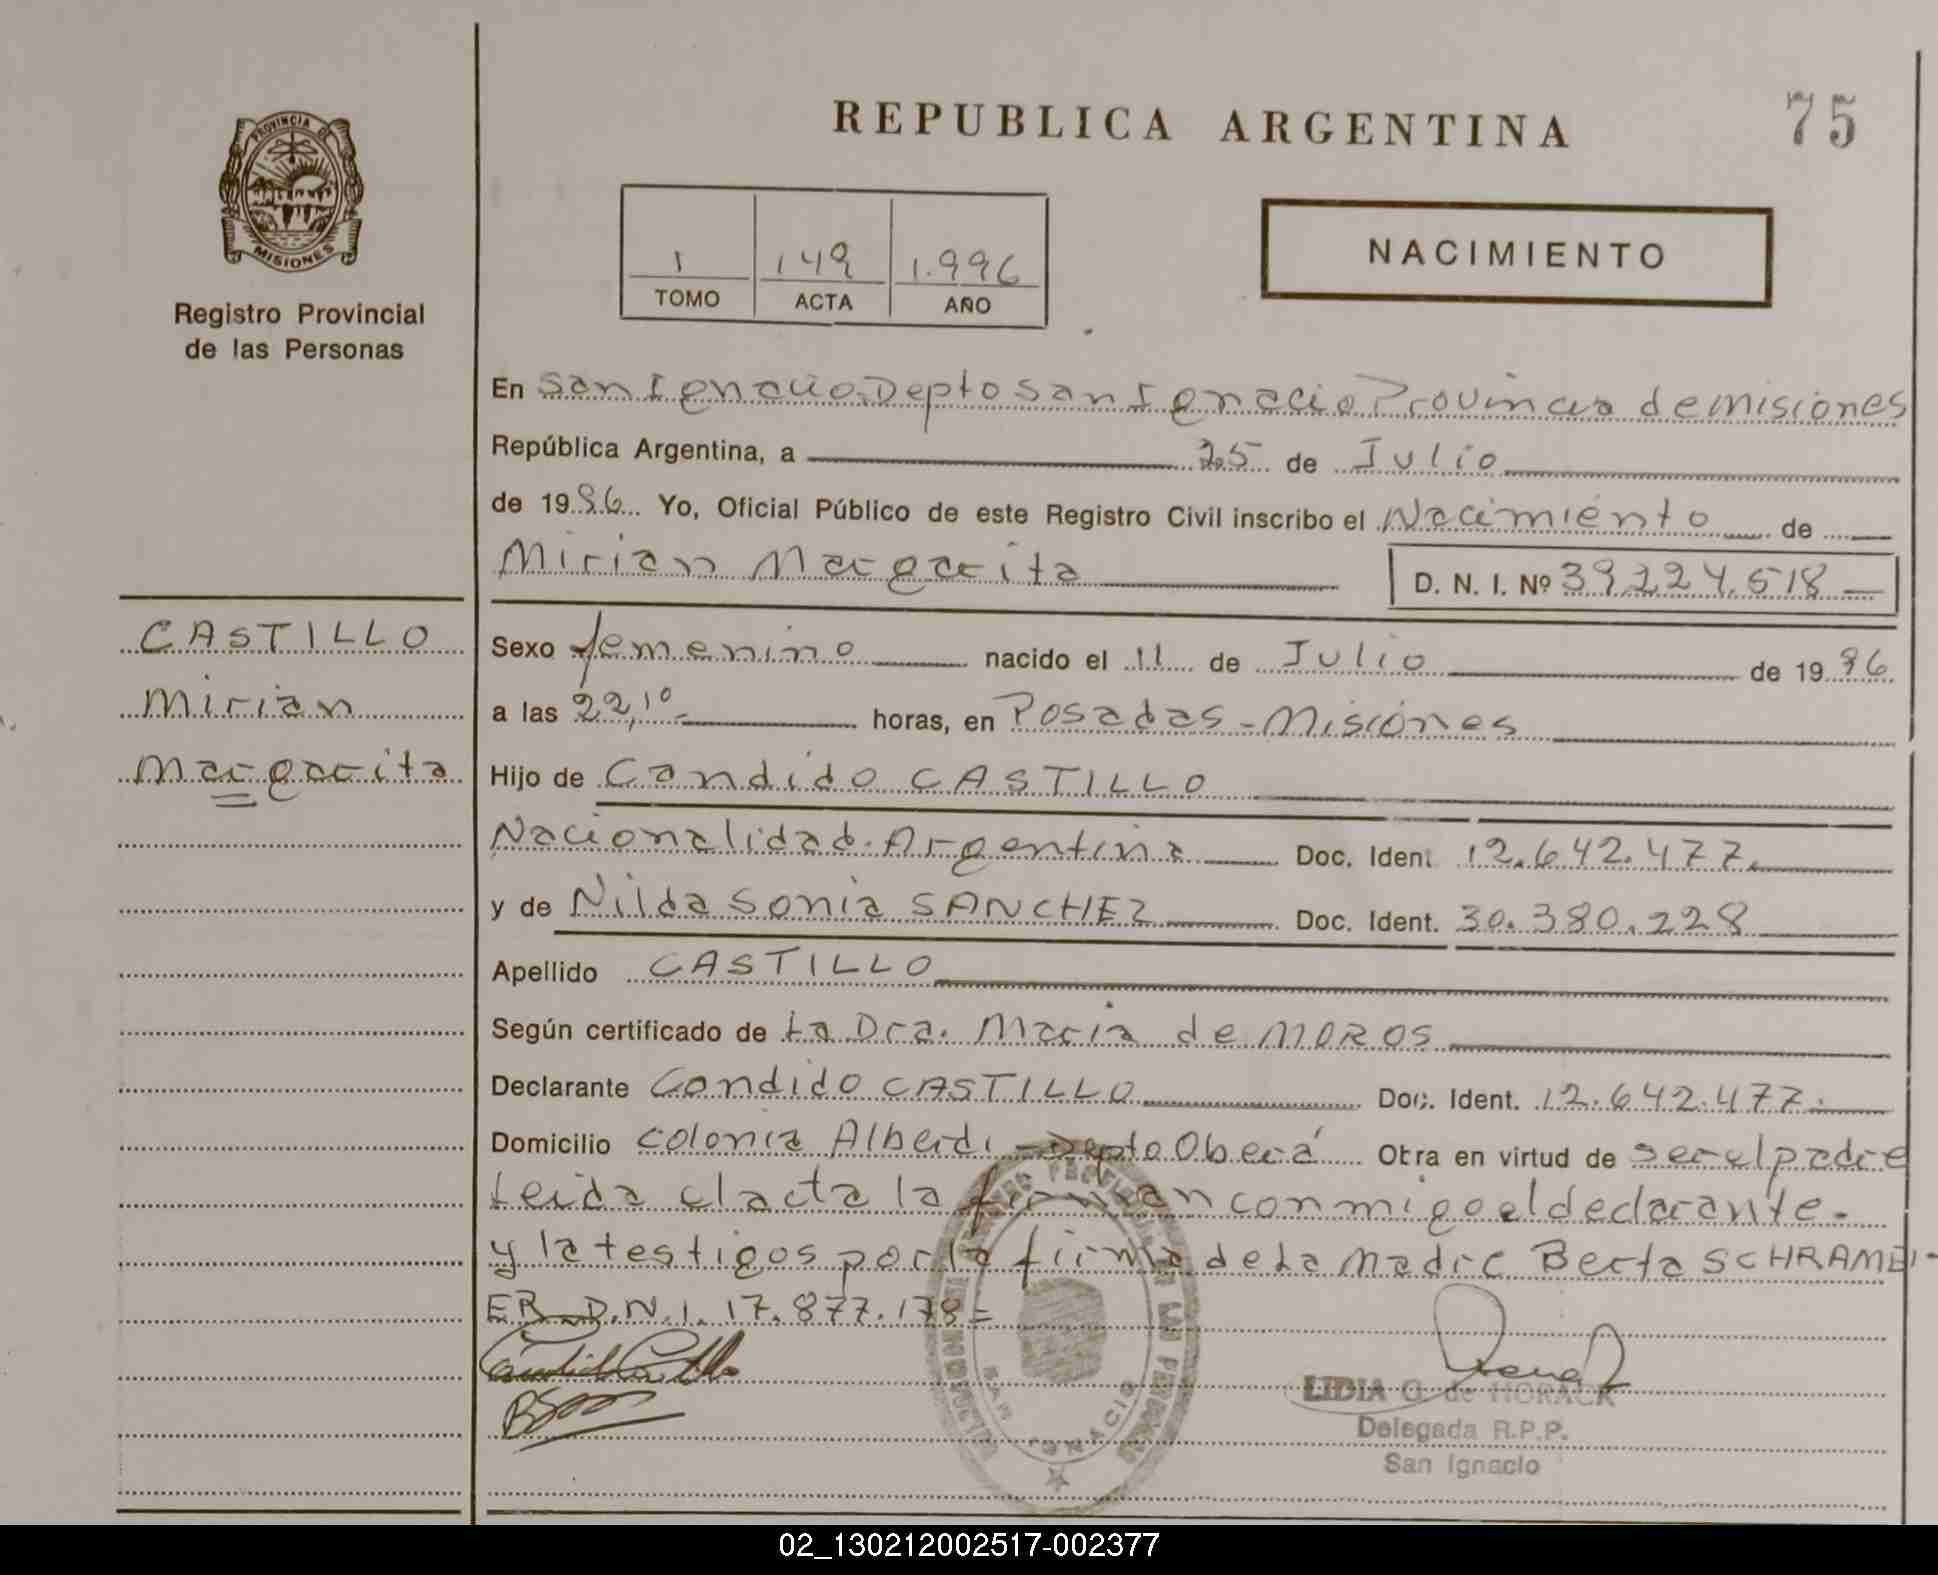 REPUBLICA ARGENTINA
75
PROVINCIA DE
MISIONES
Registro Provincial
de las Personas
1 149 1.996
TOMO ACTA AÑO
NACIMIENTO
En San Ignacio. Depto San Ignacio Provincia de misiones
República Argentina, a 25 de Julio
de 1996 Yo, Oficial Público de este Registro Civil inscribo el Nacimiento de
Mirian Margarita D. N. I. Nº 39.224.518
CASTILLO
Mirian
Margarita
Sexo femenino nacido el 11 de Julio de 1996
a las 22,10 horas, en Posadas - Misiones
Hijo de Candido CASTILLO
Nacionalidad. Argentina Doc. Ident. 12.642.477.
y de Nilda Sonia SANCHEZ Doc. Ident. 30.380.228
Apellido CASTILLO
Según certificado de La Dra. Maria de MOROS
Declarante Candido CASTILLO Doc. Ident. 12.642.477.
Domicilio Colonia Alberdi - Depto Oberá Obra en virtud de ser el padre
Leida el acta la firman conmigo el declarante.
y la testigos por la firma de la Madre Berta SCHRAMEI-
ER D.N.I. 17.877.178=
LIDIA G. de HORACK
Delegada R.P.P.
San Ignacio
02_130212002517-002377